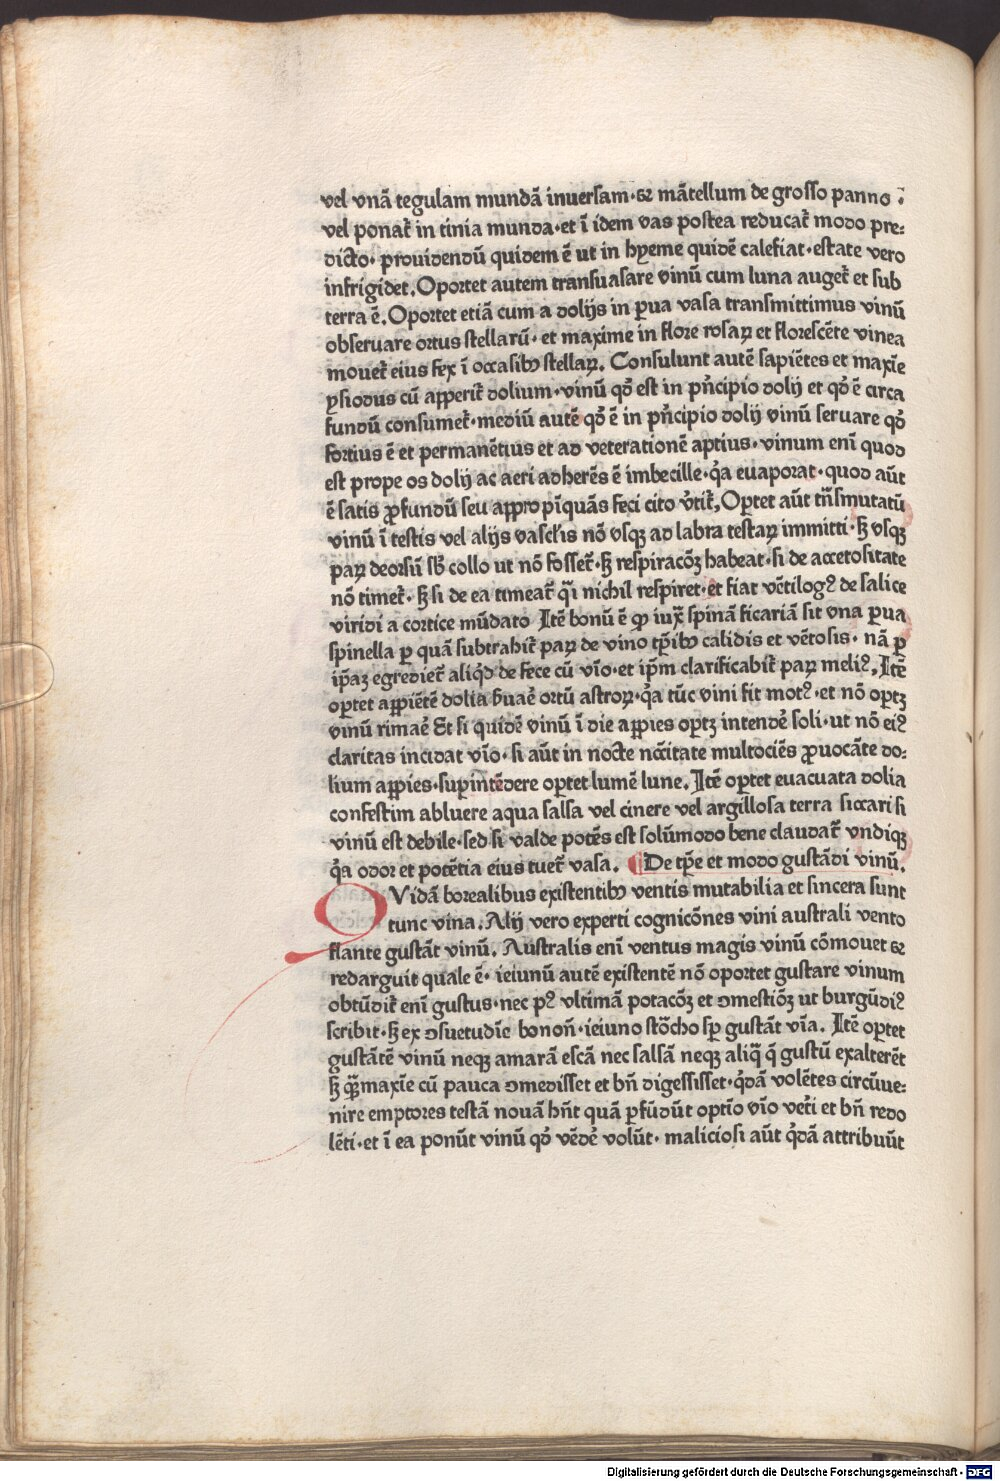 vel vnā tegulam mundā inuersam·&amp; mātellum de grosso panno :
vel ponat᷑ in tinia munda·et ī idem vas postea reducat᷑ modo pre:
dicto· prouidendū quidem ē ut in hyeme quidē calefiat·estate vero
infrigidet. Oportet autem transuasare vinū cum luna auget᷑ et sub
terra ē. Oportet etiā cum a dolijs in ꝑua vasa transmittimus vinū
obseruare ortus stellarū· et maxime in flore rosaꝝ et florescēte vinea
mouet᷑ eius fex ī occasibꝰ stellaꝝ. Consulunt autē sapiētes et maxīe
ysiodus cū apperit᷑ dolium·vinū qď est in pn̄cipio dolij et qď ē circa
fundū consumet᷑·mediū autē qď ē in pn̄cipio dolij vinū seruare qď
fortius ē et permanētius et ad veterationē aptius·vinum enī quod
est prope os dolij ac aeri adherēs ē imbecille·q̇a euaporat·quod aūt
ē satis ꝓfundū seu appropīquās feci cito v̓tit᷑. Oꝑtet aūt tn̄smutatū
vinū ī testis vel alijs vascl̓is nō vsqꝫ ad labra testaꝝ immitti·sꝫ vsqꝫ
paꝝ deorsū sb̓ collo ut nō fosset᷑·sꝫ respiracōꝫ habeat·si de accetositate
nō timet᷑·sꝫ si de ea timeat᷑ q̄ nichil respiret·et fiat vētilogꝰ de salice
viridi a cortice mūdato Itē bonū ē ꝙ iuxᷓ spinā ficariā sit vna ꝑua
spinella ꝑ quā subtrahit᷑ paꝝ de vino tp̄ibꝰ calidis et vētosis· nā ꝑ
ip̄aꝫ egrediet᷑ aliq̇d de fece cū vīo·et ip̄m clarificabit᷑ paꝝ meliꝰ. Itē
oꝑtet appiētē dolia ƀuaē ortū astroꝝ·q̇a tūc vini fit motꝰ·et nō oꝑtꝫ
vinū rimaē Et si quidē vinū ī die appies oꝑtꝫ intendē soli·ut nō eiꝰ
claritas incidat vīo·si aūt in nocte nc̄citate multociēs ꝓuocāte do:
lium appies·suꝑintēdere oꝑtet lumē lune. Itē oꝑtet euacuata dolia
confestim abluere aqua salsa vel cinere vel argillosa terra siccari si
vinū est debile·sed si valde potēs est solūmodo bene claudat᷑ vndiqꝫ
q̇a odor et potētia eius tuet᷑ vasa. De tp̄e et modo gustādi vinū.
QVidā borealibus existentibꝰ ventis mutabilia et sincera sunt
tunc vina. Alij vero experti cognicōnes vini australi vento
flante gustāt vinū. Australis enī ventus magis vinū cōmouet &amp;
redarguit quale ē· ieiunū autē existentē nō oportet gustare vinum
obtūdit᷑ enī gustus·nec pꝰ vltimā potacōꝫ et ꝯmestiōꝫ ut burgūdiꝰ
scribit·sꝫ ex ꝯsuetudīe bonoñ·ieiuno stōcho sꝑ gustāt vīa. Itē oꝑtet
gustātē vinū neqꝫ amarā escā nec salsā neqꝫ aliq̄ q̄ gustū exalterēt
sꝫ qꝫmaxīe cū pauca ꝯmedisset et bn̄ digessisset·q̇dā volētes circūue:
nire emptores testā nouā hn̄t quā ꝑfūdūt optīo vīo vet̓i et bn̄ redo
lēti·et ī ea ponūt vinū qď vēdē volūt· maliciosi aūt q̇dā attribuūt
Digitalisierung gefördert durch die Deutsche Forschungsgemeinschaft - DFG